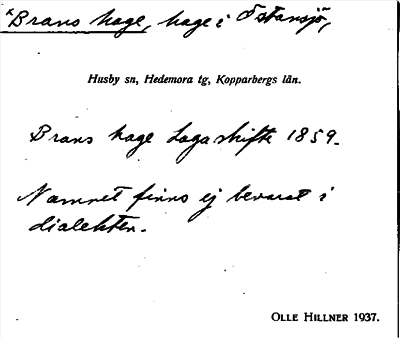 *Brans hage, hage i Östansjö,
Husby sn, Hedemora tg, Kopparbergs län.
Brans hage Laga skifte 1859.
Namnet finns ej bevarat i
dialekten.
OLLE HILLNER 1937.